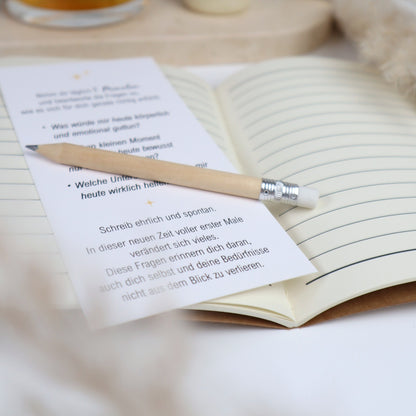 Nimm dir täglich 5 Minuten
und beantworte die Fragen so,
wie es sich für dich gerade richtig anfühlt.
• Was würde mir heute körperlich
und emotional guttun?
kleinen Moment
heute bewusst
• Welche Unter mir
heute wirklich helfen
Schreib ehrlich und spontan.
In dieser neuen Zeit voller erster Male
verändert sich vieles.
Diese Fragen erinnern dich daran,
auch dich selbst und deine Bedürfnisse
nicht aus dem Blick zu verlieren.